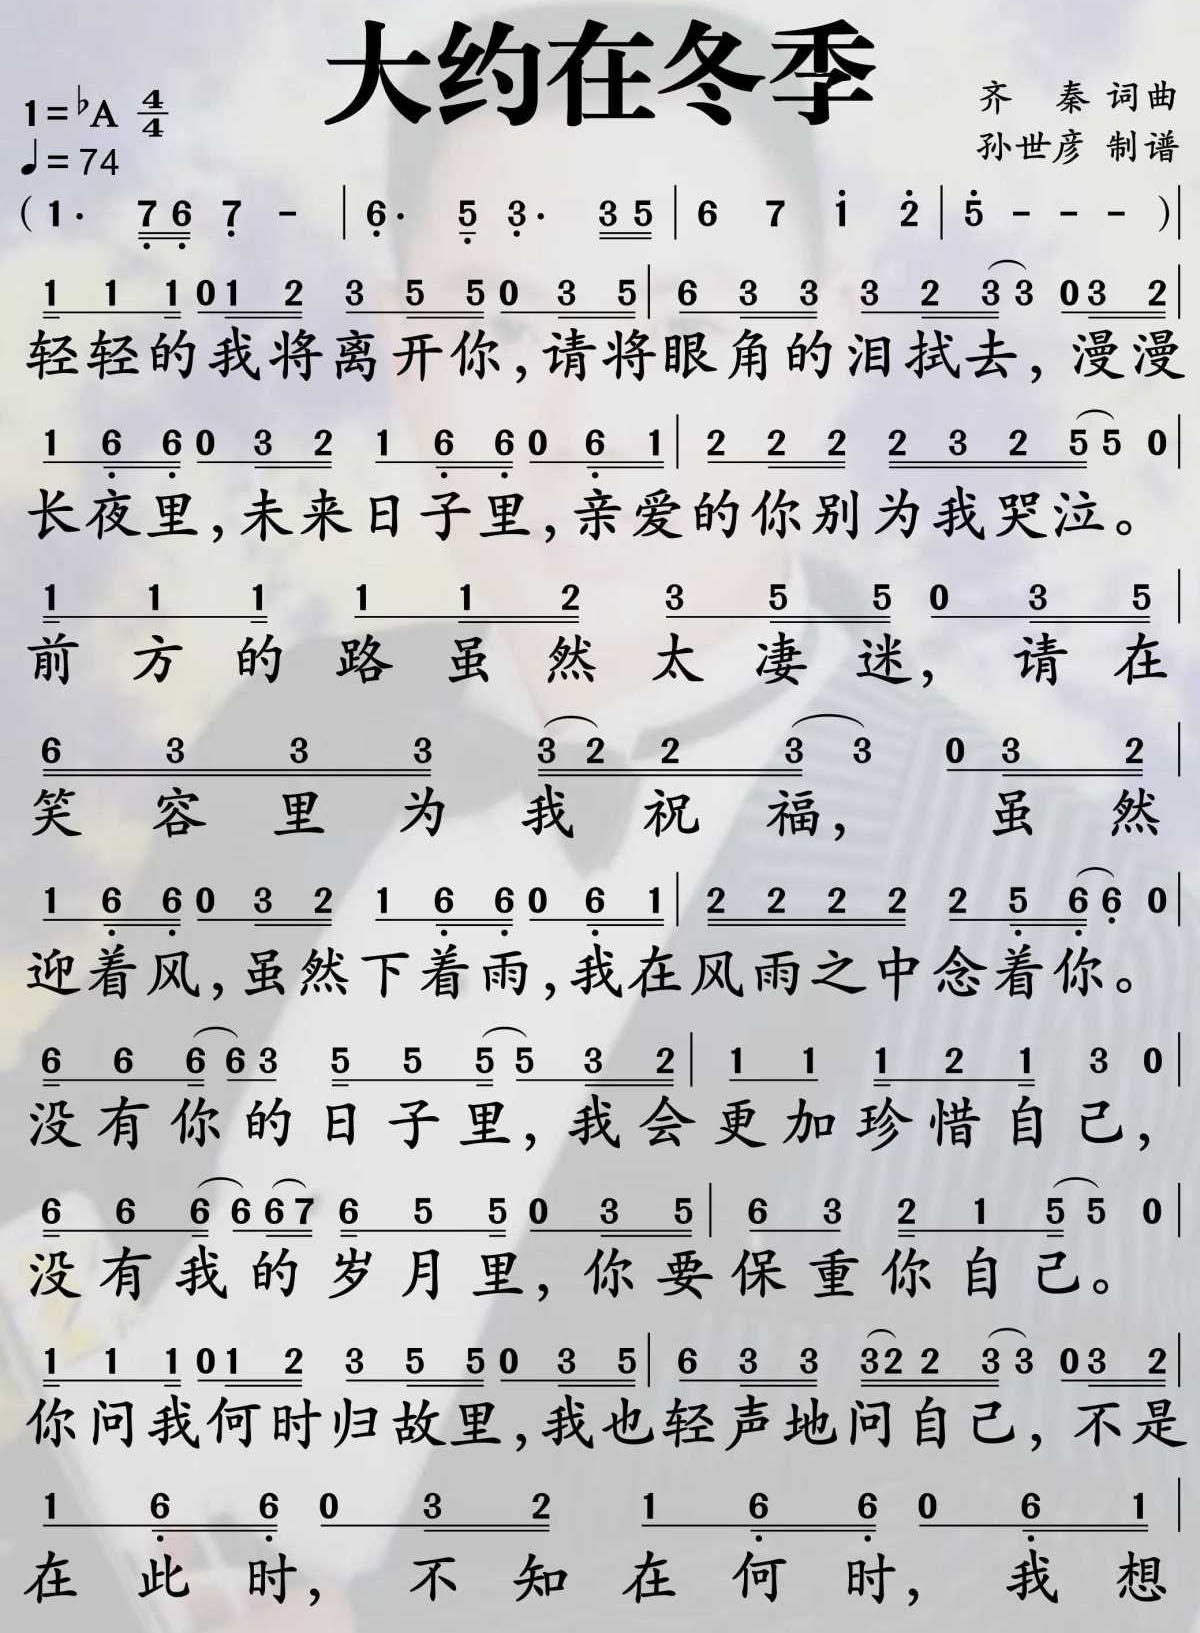 大约在冬季
1=♭A 4/4
♩=74
齐 秦 词曲
孙世彦 制谱
(1· 7 6 7 - | 6· 5 3· 3 5 | 6 7 1 2 | 5 - - - )|
1 1 1 0 1 2 3 5 5 0 3 5 | 6 3 3 3 2 3 3 0 3 2 |
轻轻的我将离开你,请将眼角的泪拭去,漫漫
1 6 6 0 3 2 1 6 6 0 6 1 | 2 2 2 2 3 2 5 5 0 |
长夜里,未来日子里,亲爱的你别为我哭泣。
1 1 1 1 1 2 3 5 5 0 3 5 |
前方的路虽然太凄迷,请在
6 3 3 3 3 2 2 3 3 0 3 2 |
笑容里为我祝福,虽然
1 6 6 0 3 2 1 6 6 0 6 1 | 2 2 2 2 2 5 6 6 0 |
迎着风,虽然下着雨,我在风雨之中念着你。
6 6 6 6 3 5 5 5 5 3 2 | 1 1 1 2 1 3 0 |
没有你的日子里,我会更加珍惜自己,
6 6 6 6 6 7 6 5 5 0 3 5 | 6 3 2 1 5 5 0 |
没有我的岁月里,你要保重你自己。
1 1 1 0 1 2 3 5 5 0 3 5 | 6 3 3 3 2 2 3 3 0 3 2 |
你问我何时归故里,我也轻声地问自己,不是
1 6 6 0 3 2 1 6 6 0 6 1 |
在此时,不知在何时,我想